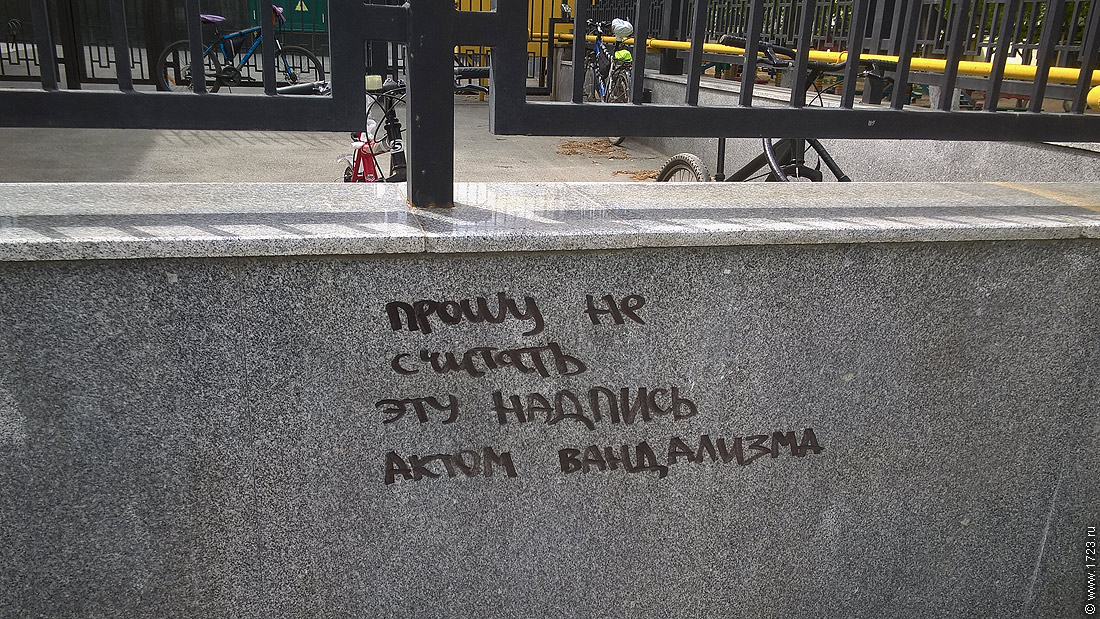 прошу не
считать
эту надпись
актом вандализма
© www.1723.ru